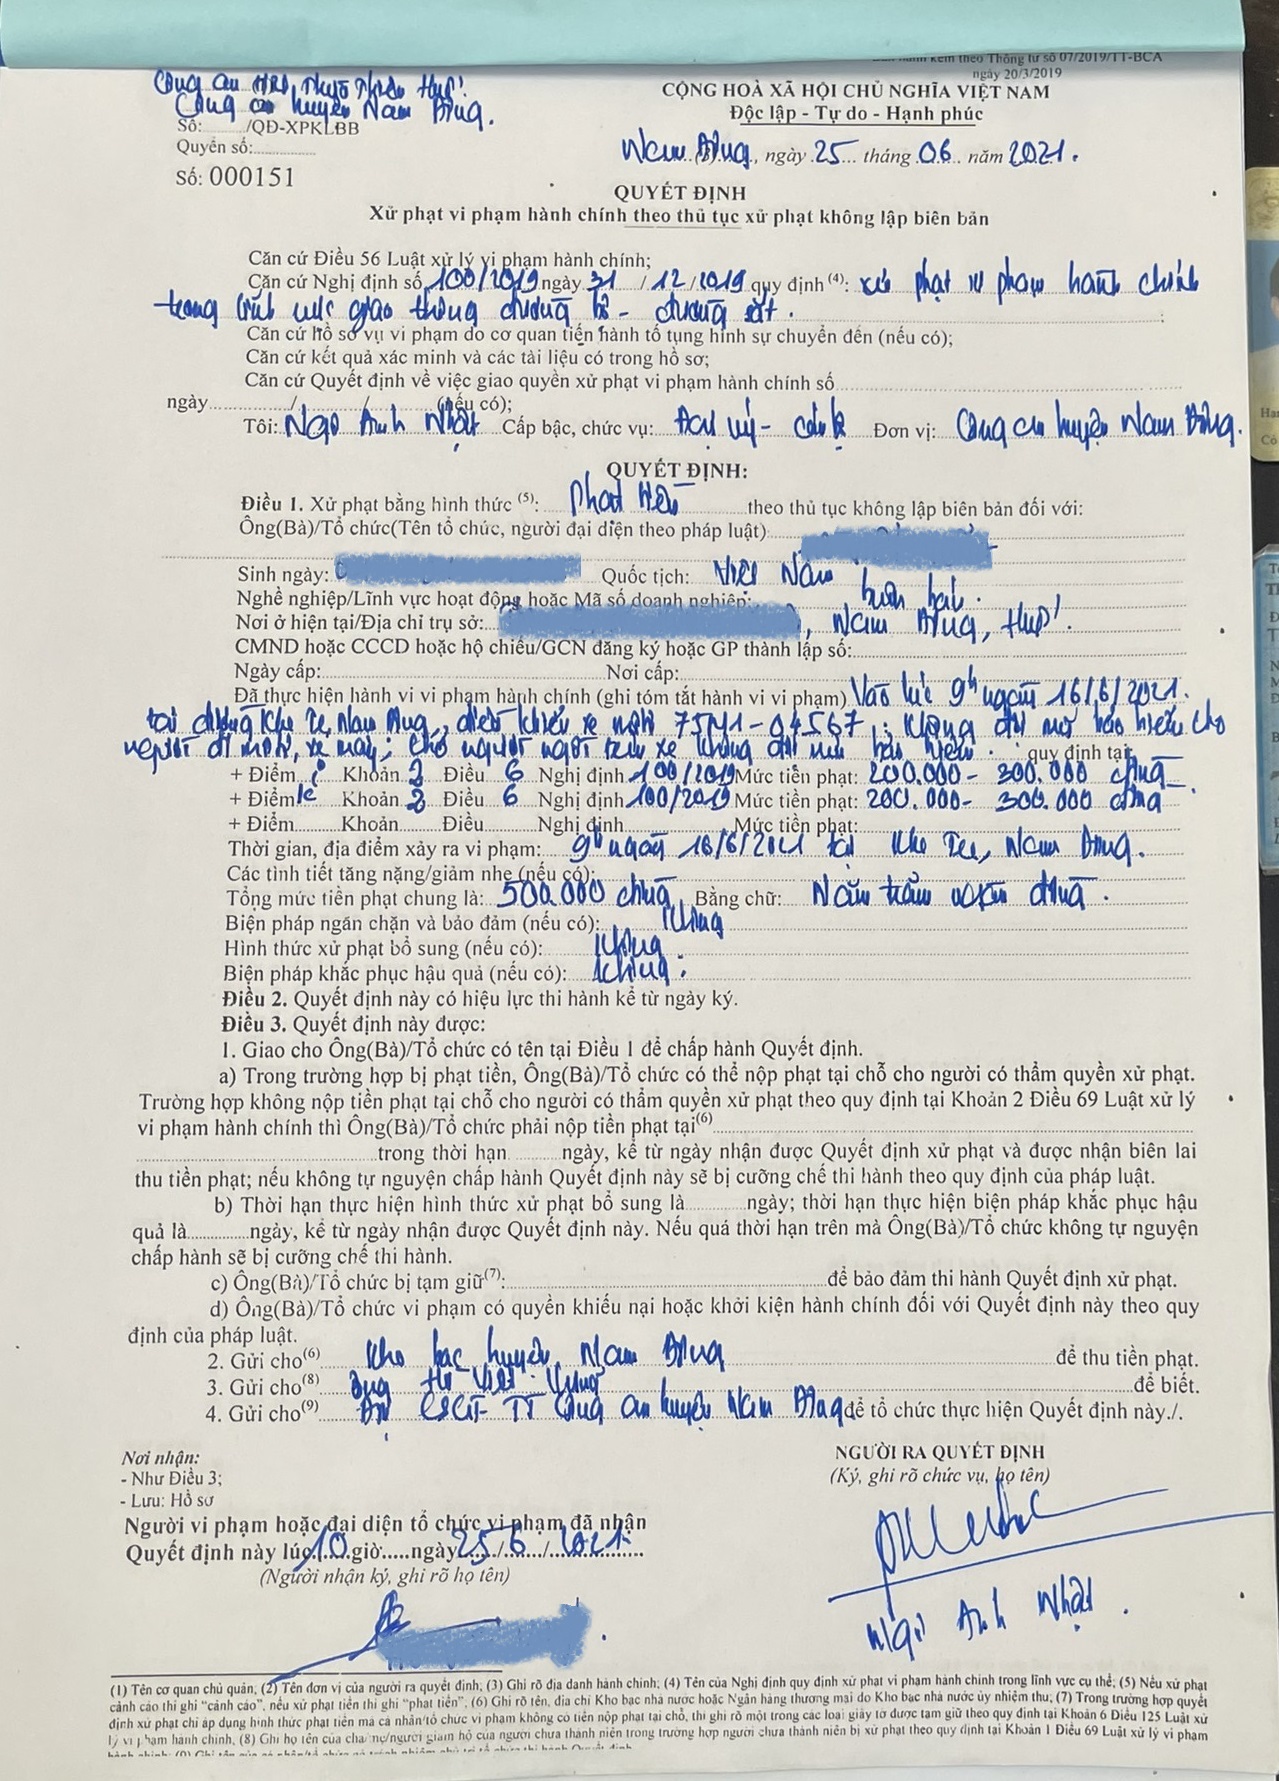 kèm theo Thông tư số 07/2019/TT-BCA
ngày 20/3/2019
Công an
Công an huyện Nam Đông.
CỘNG HOÀ XÃ HỘI CHỦ NGHĨA VIỆT NAM
Độc lập - Tự do - Hạnh phúc
Số:....../QĐ-XPKLBB
Quyển số:.............
Nam Đông, ngày 25 tháng 06 năm 2021.
Số: 000151
QUYẾT ĐỊNH
Xử phạt vi phạm hành chính theo thủ tục xử phạt không lập biên bản
Căn cứ Điều 56 Luật xử lý vi phạm hành chính;
Căn cứ Nghị định số 100/2019 ngày 31 / 12 /2019 quy định (4): xử phạt vi phạm hành chính
trong lĩnh vực giao thông đường bộ - đường sắt.
Căn cứ hồ sơ vụ vi phạm do cơ quan tiến hành tố tụng hình sự chuyển đến (nếu có);
Căn cứ kết quả xác minh và các tài liệu có trong hồ sơ;
Căn cứ Quyết định về việc giao quyền xử phạt vi phạm hành chính số
ngày............/............/............(nếu có);
Tôi: Ngô Anh Nhật Cấp bậc, chức vụ: Đại úy - cán bộ Đơn vị: Công an huyện Nam Đông.
QUYẾT ĐỊNH:
Điều 1. Xử phạt bằng hình thức (5): Phạt tiền theo thủ tục không lập biên bản đối với:
Ông(Bà)/Tổ chức(Tên tổ chức, người đại diện theo pháp luật)
Sinh ngày: Quốc tịch: Việt Nam
Nghề nghiệp/Lĩnh vực hoạt động hoặc Mã số doanh nghiệp: buôn bán.
Nơi ở hiện tại/Địa chỉ trụ sở: , Nam Đông, Huế.
CMND hoặc CCCD hoặc hộ chiếu/GCN đăng ký hoặc GP thành lập số:
Ngày cấp: Nơi cấp:
Đã thực hiện hành vi vi phạm hành chính (ghi tóm tắt hành vi vi phạm) Vào lúc 9h ngày 16/6/2021.
tại đường Khe Tre, Nam Đông, điều khiển xe 75M1-04567; không đội mũ bảo hiểm cho
người đi mô tô, xe máy; chở người ngồi trên xe không đội mũ bảo hiểm. quy định tại:
+ Điểm i Khoản 2 Điều 6 Nghị định 100/2019 Mức tiền phạt: 200.000 - 300.000 đồng
+ Điểm k Khoản 2 Điều 6 Nghị định 100/2019 Mức tiền phạt: 200.000 - 300.000 đồng
+ Điểm........Khoản........Điều........Nghị định........Mức tiền phạt:
Thời gian, địa điểm xảy ra vi phạm: 9h ngày 16/6/2021 tại Khe Tre, Nam Đông.
Các tình tiết tăng nặng/giảm nhẹ (nếu có):
Tổng mức tiền phạt chung là: 500.000 đồng Bằng chữ: Năm trăm nghìn đồng.
Biện pháp ngăn chặn và bảo đảm (nếu có): Không
Hình thức xử phạt bổ sung (nếu có): Không
Biện pháp khắc phục hậu quả (nếu có): Không.
Điều 2. Quyết định này có hiệu lực thi hành kể từ ngày ký.
Điều 3. Quyết định này được:
1. Giao cho Ông(Bà)/Tổ chức có tên tại Điều 1 để chấp hành Quyết định.
a) Trong trường hợp bị phạt tiền, Ông(Bà)/Tổ chức có thể nộp phạt tại chỗ cho người có thẩm quyền xử phạt.
Trường hợp không nộp tiền phạt tại chỗ cho người có thẩm quyền xử phạt theo quy định tại Khoản 2 Điều 69 Luật xử lý
vi phạm hành chính thì Ông(Bà)/Tổ chức phải nộp tiền phạt tại(6)
trong thời hạn........ngày, kể từ ngày nhận được Quyết định xử phạt và được nhận biên lai
thu tiền phạt; nếu không tự nguyện chấp hành Quyết định này sẽ bị cưỡng chế thi hành theo quy định của pháp luật.
b) Thời hạn thực hiện hình thức xử phạt bổ sung là..........ngày; thời hạn thực hiện biện pháp khắc phục hậu
quả là..........ngày, kể từ ngày nhận được Quyết định này. Nếu quá thời hạn trên mà Ông(Bà)/Tổ chức không tự nguyện
chấp hành sẽ bị cưỡng chế thi hành.
c) Ông(Bà)/Tổ chức bị tạm giữ(7):..........để bảo đảm thi hành Quyết định xử phạt.
d) Ông(Bà)/Tổ chức vi phạm có quyền khiếu nại hoặc khởi kiện hành chính đối với Quyết định này theo quy
định của pháp luật.
2. Gửi cho(6) Kho bạc huyện Nam Đông để thu tiền phạt.
3. Gửi cho(8) ông Hồ Viết để biết.
4. Gửi cho(9) Đội CSGT-TT Công an huyện Nam Đông để tổ chức thực hiện Quyết định này./.
Nơi nhận:
- Như Điều 3;
- Lưu: Hồ sơ
NGƯỜI RA QUYẾT ĐỊNH
(Ký, ghi rõ chức vụ, họ tên)
Người vi phạm hoặc đại diện tổ chức vi phạm đã nhận
Quyết định này lúc 10 giờ.....ngày 25/6/2021
(Người nhận ký, ghi rõ họ tên)
Ngô Anh Nhật.
(1) Tên cơ quan chủ quản; (2) Tên đơn vị của người ra quyết định; (3) Ghi rõ địa danh hành chính; (4) Tên của Nghị định quy định xử phạt vi phạm hành chính trong lĩnh vực cụ thể; (5) Nếu xử phạt
cảnh cáo thì ghi "cảnh cáo", nếu xử phạt tiền thì ghi "phạt tiền"; (6) Ghi rõ tên, địa chỉ Kho bạc nhà nước hoặc Ngân hàng thương mại do Kho bạc nhà nước ủy nhiệm thu; (7) Trong trường hợp quyết
định xử phạt chỉ áp dụng hình thức phạt tiền mà cá nhân/tổ chức vi phạm không có tiền nộp phạt tại chỗ, thì ghi rõ một trong các loại giấy tờ được tạm giữ theo quy định tại Khoản 6 Điều 125 Luật xử
lý vi phạm hành chính, (8) Ghi họ tên của cha/mẹ/người giám hộ của người chưa thành niên trong trường hợp người chưa thành niên bị xử phạt theo quy định tại Khoản 1 Điều 69 Luật xử lý vi phạm